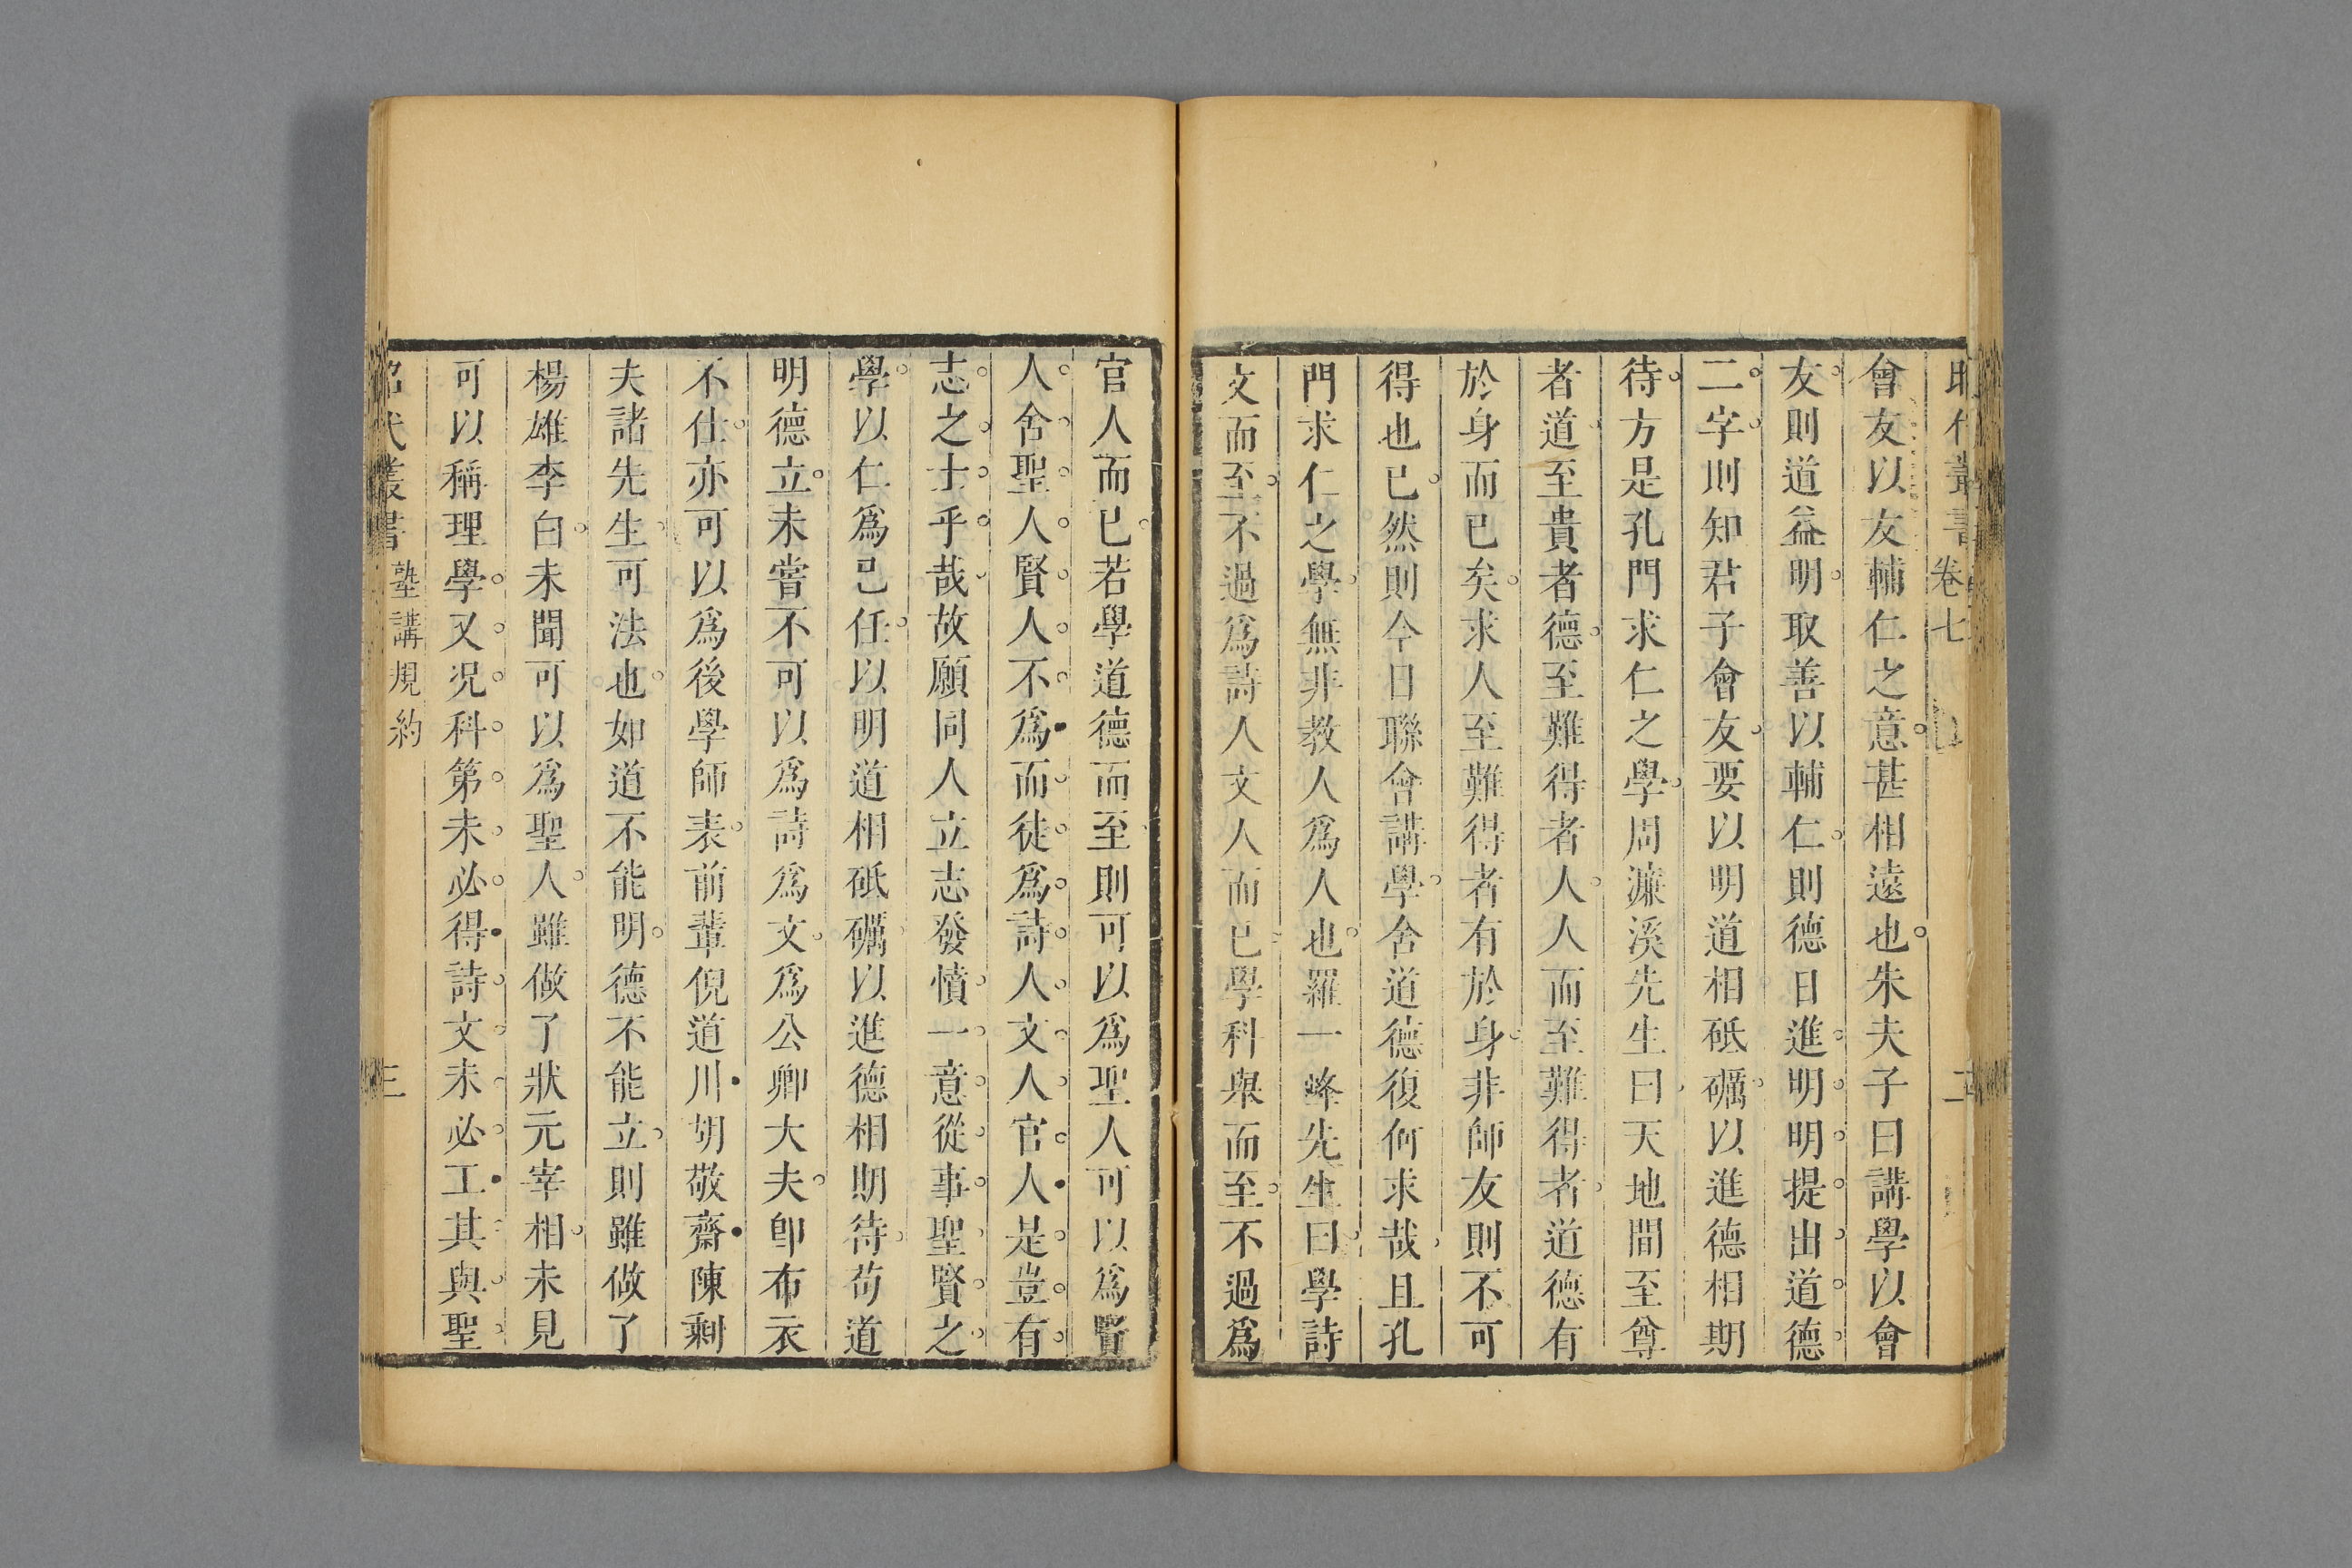 昭代叢書 卷七 二
會友以友輔仁之意甚相遠也朱夫子曰講學以會
友則道益明取善以輔仁則德日進明明提出道德
二字則知君子會友要以明道相砥礪以進德相期
待方是孔門求仁之學周濂溪先生曰天地間至尊
者道至貴者德至難得者人人而至難得者道德有
於身而已矣求人至難得者有於身非師友則不可
得也已然則今日聯會講學舍道德復何求哉且孔
門求仁之學無非教人爲人也羅一峰先生曰學詩
文而至不過爲詩人文人而已學科舉而至不過爲
官人而已若學道德而至則可以爲聖人可以爲賢
人舍聖人賢人不爲而徒爲詩人文人官人是豈有
志之士乎哉故願同人立志發憤一意從事聖賢之
學以仁爲己任以明道相砥礪以進德相期待苟道
明德立未嘗不可以爲詩爲文爲公卿大夫卽布衣
不仕亦可以爲後學師表前輩倪道川胡敬齋陳剩
夫諸先生可法也如道不能明德不能立則雖做了
楊雄李白未聞可以爲聖人雖做了狀元宰相未見
可以稱理學又况科第未必得詩文未必工其與聖
昭代叢書 塾講規約 三